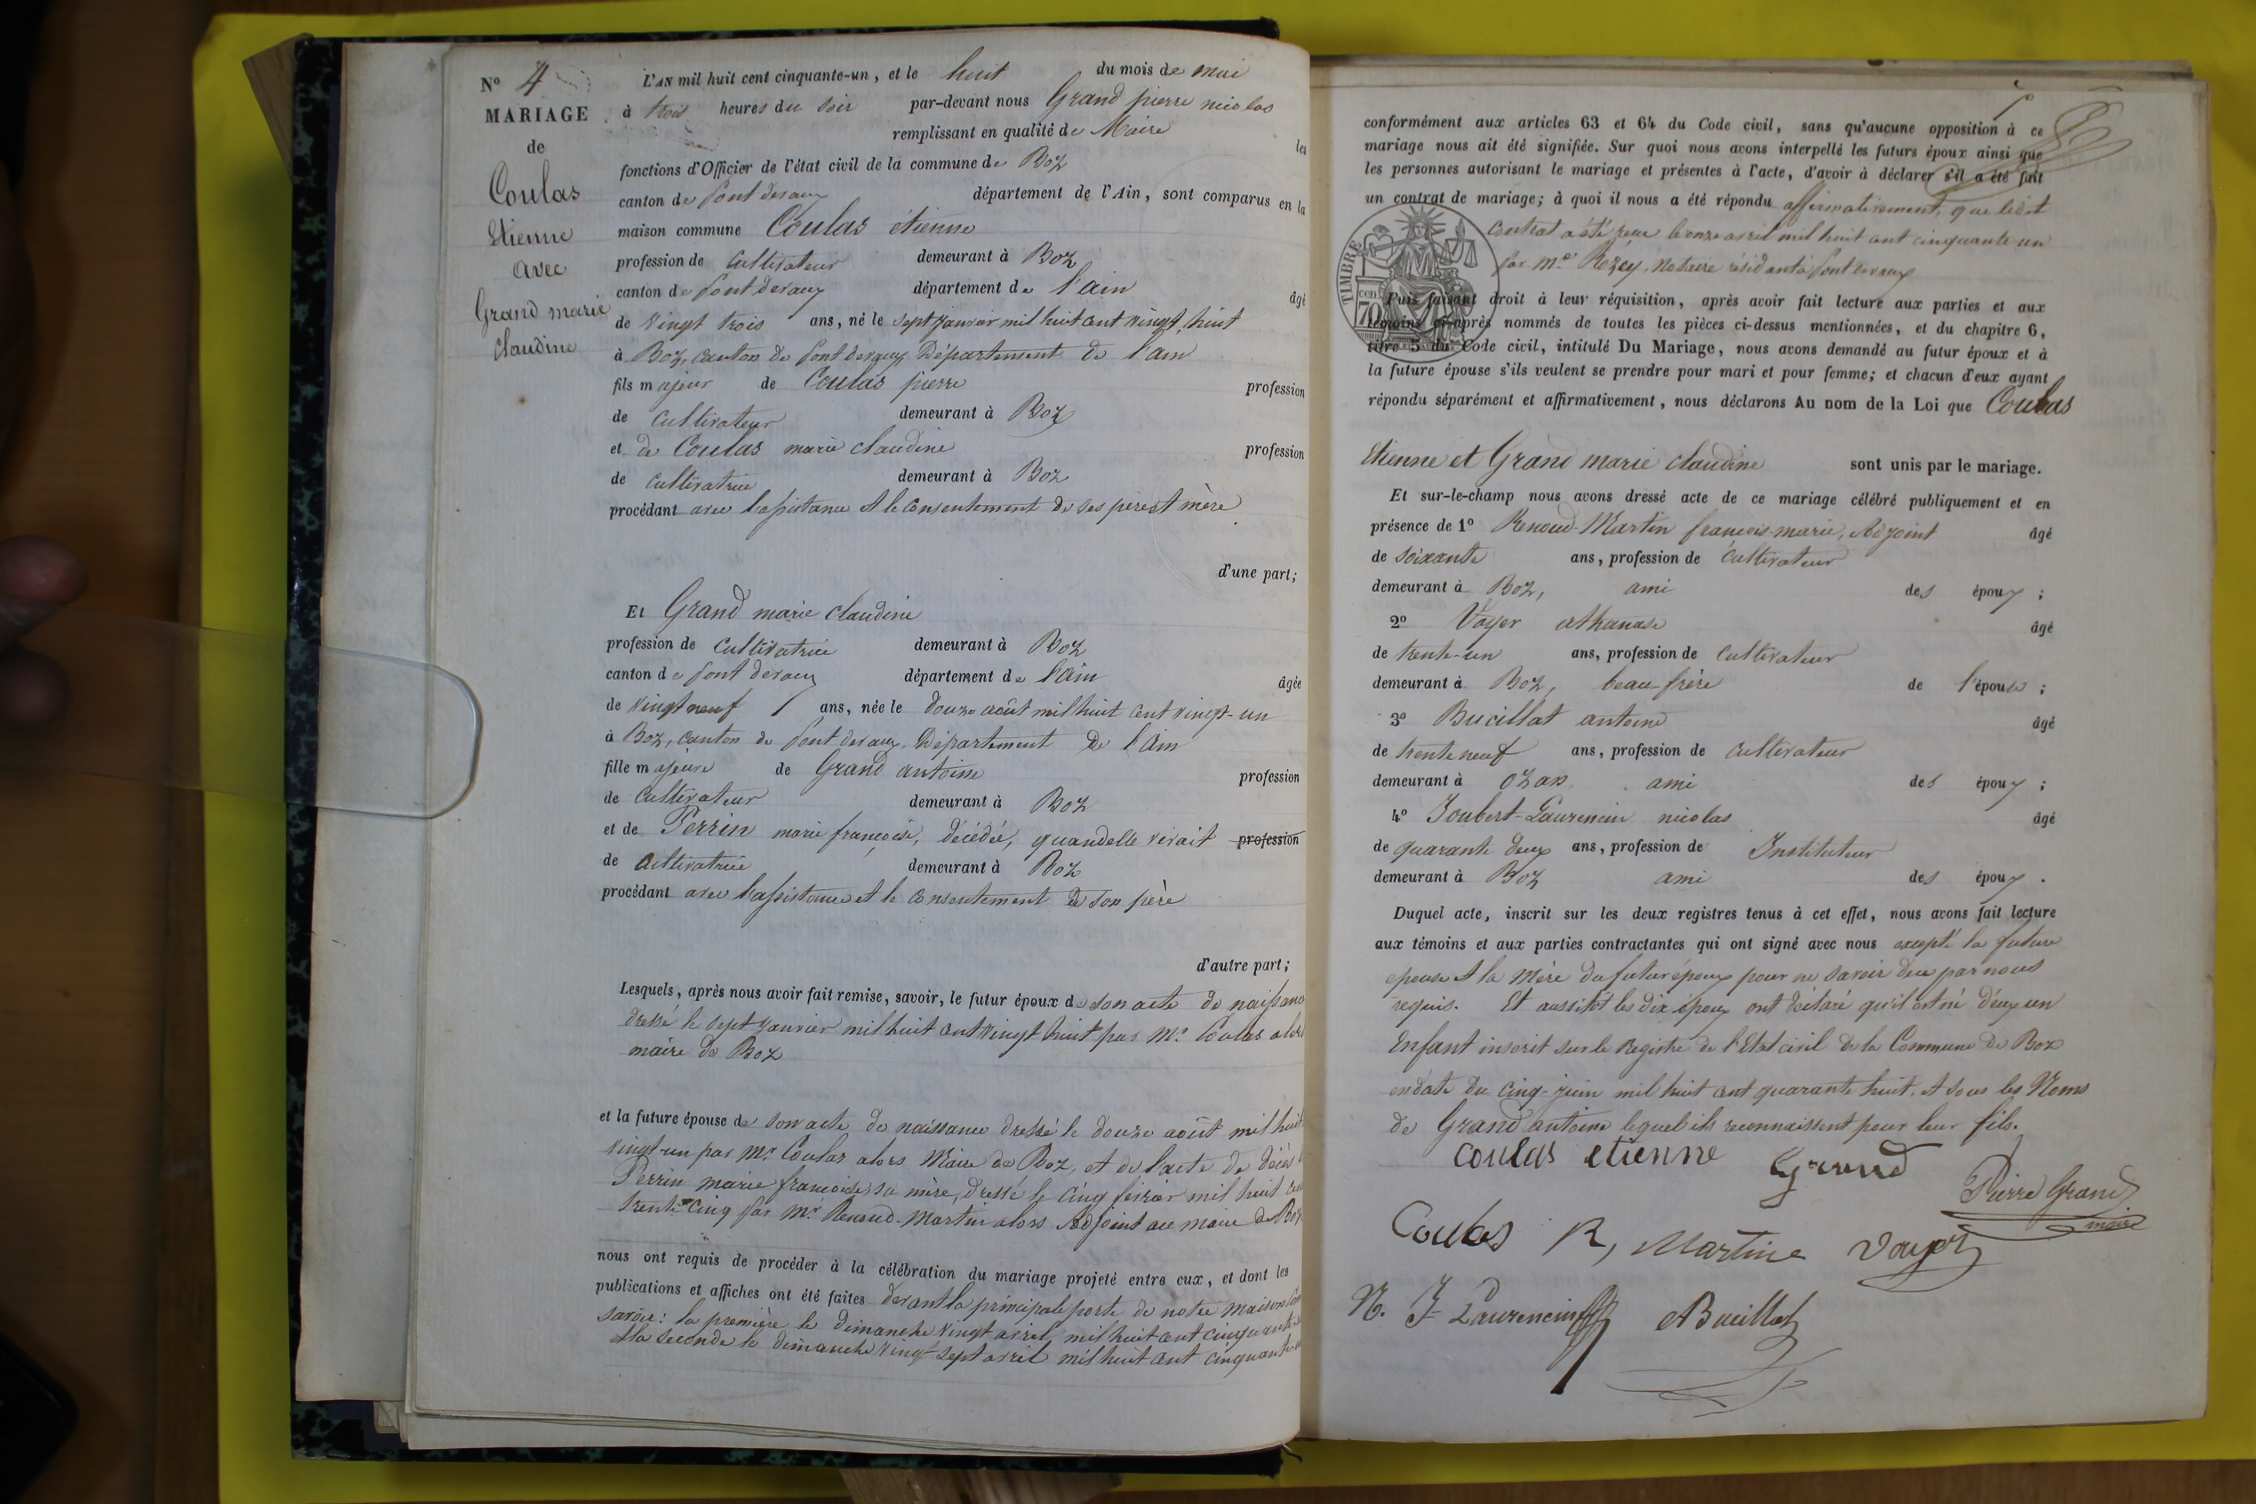 N° 4
MARIAGE
de
Coulas
Etienne
avec
Grand marie
claudine
L'AN mil huit cent cinquante-un, et le huit du mois de mai
à trois heures du soir par-devant nous Grand pierre nicolas
remplissant en qualité de Maire les
fonctions d'Officier de l'état civil de la commune de Boz
canton de pont devaux département de l'Ain, sont comparus en la
maison commune Coulas étienne
profession de cultivateur demeurant à Boz
canton de pont devaux département de l'ain âgé
de vingt trois ans, né le sept janvier mil huit cent vingt huit
à Boz, canton de pont devaux Département de l'ain
fils majeur de Coulas pierre profession
de cultivateur demeurant à Boz
et de Coulas marie claudine profession
de cultivatrice demeurant à Boz
procédant avec l'assistance et le consentement de ses père et mère
d'une part;
Et Grand marie claudine
profession de cultivatrice demeurant à Boz
canton de pont devaux département de l'Ain âgée
de vingt neuf ans, née le douze août mil huit cent vingt-un
à Boz, canton de pont devaux, Département de l'Ain
fille majeure de Grand antoine profession
de cultivateur demeurant à Boz
et de Perrin marie françoise, décédée, quand elle vivait profession
de cultivatrice demeurant à Boz
procédant avec l'assistance et le consentement de son père
d'autre part;
Lesquels, après nous avoir fait remise, savoir, le futur époux de son acte de naissance
dressé le sept janvier mil huit cent vingt huit par Mr. Coulas alors
maire de Boz
et la future épouse de son acte de naissance dressé le douze août mil huit
vingt-un par Mr. Coulas alors Maire de Boz, et de l'acte de décès
Perrin marie françoise sa mère, dressé le cinq février mil huit cent
trente cinq par Mr. Renoud-Martin alors Adjoint au maire de Boz
nous ont requis de procéder à la célébration du mariage projeté entre eux, et dont les
publications et affiches ont été faites devant la principale porte de notre maison
savoir: la première le dimanche vingt avril mil huit cent cinquante
et la seconde le dimanche vingt-sept avril mil huit cent cinquante
conformément aux articles 63 et 64 du Code civil, sans qu'aucune opposition à ce
mariage nous ait été signifiée. Sur quoi nous avons interpellé les futurs époux ainsi que
les personnes autorisant le mariage et présentes à l'acte, d'avoir à déclarer s'il a été fait
un contrat de mariage; à quoi il nous a été répondu affirmativement, que ledit
contrat a été reçu le onze avril mil huit cent cinquante un
par Me Rozey, Notaire résidant à pont devaux
TIMBRE
70
Puis faisant droit à leur réquisition, après avoir fait lecture aux parties et aux
témoins ci-après nommés de toutes les pièces ci-dessus mentionnées, et du chapitre 6,
titre 5 du Code civil, intitulé Du Mariage, nous avons demandé au futur époux et à
la future épouse s'ils veulent se prendre pour mari et pour femme; et chacun d'eux ayant
répondu séparément et affirmativement, nous déclarons Au nom de la Loi que Coulas
Etienne et Grand marie claudine sont unis par le mariage.
Et sur-le-champ nous avons dressé acte de ce mariage célébré publiquement et en
présence de 1° Renoud-Martin francois-marie, Adjoint âgé
de soixante ans, profession de cultivateur
demeurant à Boz, ami des époux;
2° Voyer athanase âgé
de trente-un ans, profession de cultivateur
demeurant à Boz, beau frère de l'épouse;
3° Bucillat antoine âgé
de trente neuf ans, profession de cultivateur
demeurant à Ozan ami des époux;
4° Joubert-Laurencin nicolas âgé
de quarante deux ans, profession de Instituteur
demeurant à Boz ami des époux.
Duquel acte, inscrit sur les deux registres tenus à cet effet, nous avons fait lecture
aux témoins et aux parties contractantes qui ont signé avec nous excepté la future
épouse et la mère du futur époux pour ne savoir de ce par nous
requis. Et aussitôt les dix époux ont déclaré qu'il est né d'eux un
Enfant inscrit sur le Registre de l'Etat civil de la Commune de Boz
en date du cinq-juin mil huit cent quarante huit, et sous les Noms
de Grand antoine lequel ils reconnaissent pour leur fils.
coulas etienne Grand
Pierre Grand
maire
Coulas R, Martin Voyer
N. J- Laurencin Bucillat